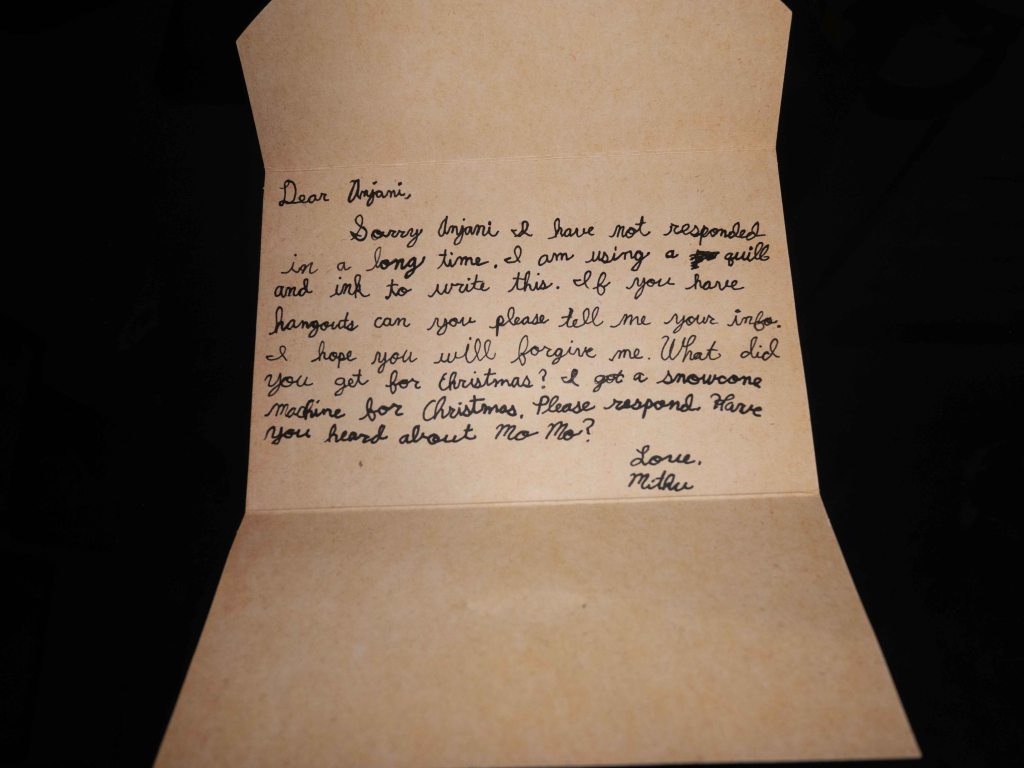 Dear Anjani,
Sorry Anjani I have not responded
in a long time. I am using a quill
and ink to write this. If you have
hangouts can you please tell me your info.
I hope you will forgive me. What did
you get for Christmas? I got a snowcone
machine for Christmas. Please respond. Have
you heard about Mo Mo?
Love,
Mithu